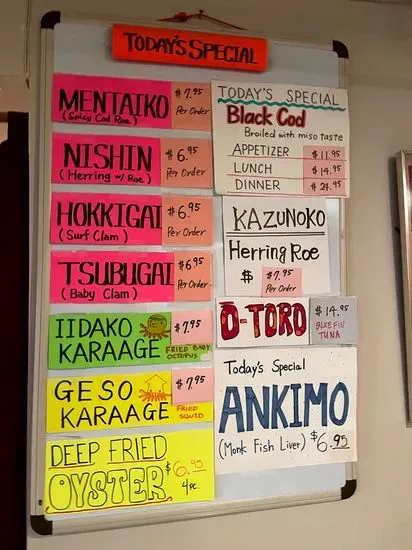 TODAY'S SPECIAL
MENTAIKO
(Spicy Cod Roe)
$7.95
Per Order
NISHIN
(Herring w/ Roe)
$6.95
Per Order
HOKKIGAI
(Surf Clam)
$6.95
Per Order
TSUBUGAI
(Baby Clam)
$6.95
Per Order
IIDAKO
KARAAGE
$7.95
FRIED BABY
OCTOPUS
GESO
KARAAGE
$7.95
FRIED
SQUID
DEEP FRIED
OYSTER
$6.95
4pc.
TODAY'S SPECIAL
Black Cod
Broiled with miso taste
APPETIZER $11.95
LUNCH $14.95
DINNER $24.95
KAZUNOKO
Herring Roe
$ $7.95
Per Order
O-TORO
$14.95
BLUE FIN
TUNA
Today's Special
ANKIMO
(Monk Fish Liver) $6.95